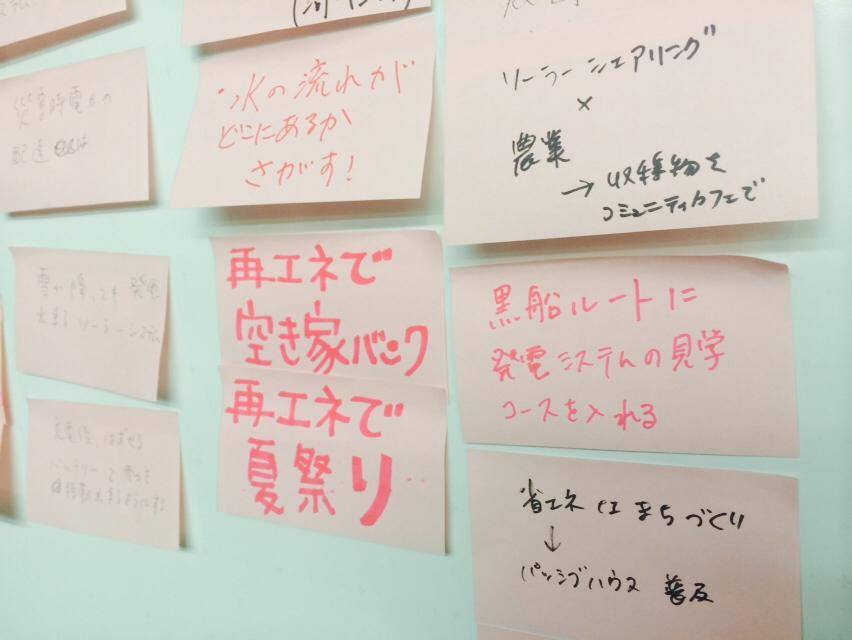 災害時電力の
配達
・水の流れが
どこにあるか
さがす!
ソーラーシェアリング
×
農業
→収穫物を
コミュニティカフェで
雪が降っても 発電
出来る ソーラーシステム
再エネで
空き家バンク
黒船ルートに
発電システムの見学
コースを入れる
充電後 はずせる
バッテリーで電力を
再エネで
夏祭り
省エネはまちづくり
↓
パッシブハウス 普及